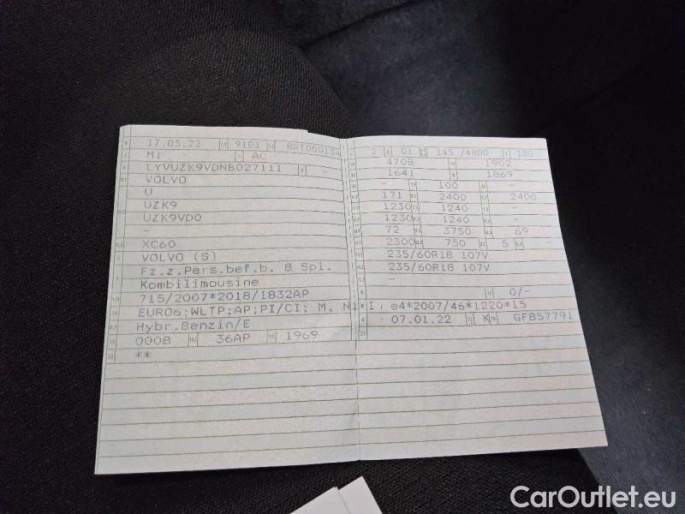 17.05.22 9101
M1 AC
LYVUZK9VDNB027111 -
VOLVO
U
UZK9
UZK9VD0
-
XC60
VOLVO (S)
Fz.z.Pers.bef.b. 8 Spl.
Kombilimousine
715/2007*2018/1832AP
EURO6;WLTP;AP;PI/CI; M, N1 I
Hybr.Benzin/E
0008 36AP 1969
**
2 01 145 /4800 180
4708 1902
1641 1869
- 100 -
171 2400 2400
1230 1240 -
1230 1240 -
72 3750 69
2300 750 5 -
235/60R18 107V
235/60R18 107V
-
0/-
e4*2007/46*1220*15
07.01.22 K GF857791
CarOutlet.eu